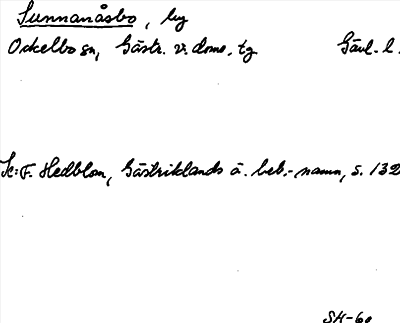 Sunnanåsbo, by
Ockelbo sn, Gästr. v. doms. tg Gävl. l.
K: F. Hedblom, Gästriklands ä. beb.-namn, s. 132
SH-60